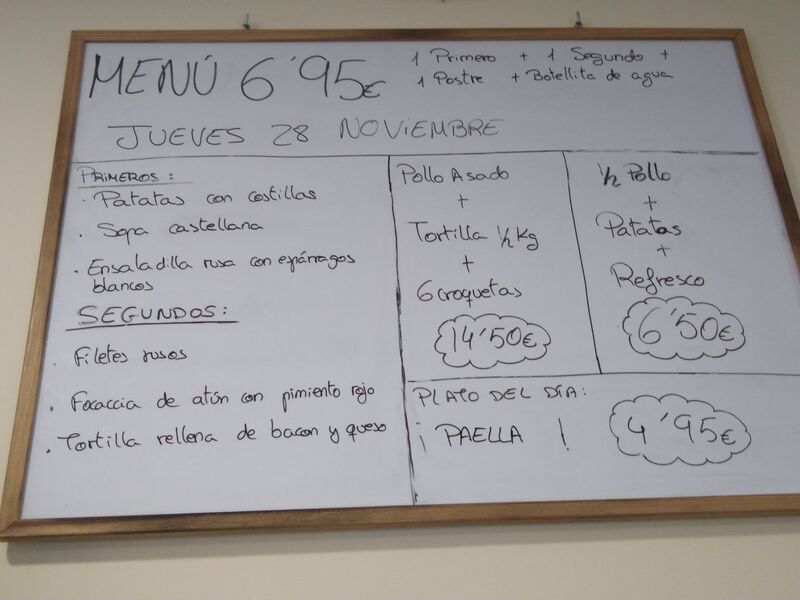 MENÚ 6'95€
1 Primero + 1 Segundo +
1 Postre + Botellita de agua
JUEVES 28 NOVIEMBRE
PRIMEROS:
· Patatas con costillas
· Sopa castellana
· Ensaladilla rusa con espárragos
blancos
SEGUNDOS:
· Filetes rusos
· Focaccia de atún con pimiento rojo
· Tortilla rellena de bacon y queso
Pollo Asado
+
Tortilla 1/2 Kg
+
6 croquetas
14'50€
1/2 Pollo
+
Patatas
+
Refresco
6'50€
PLATO DEL DÍA:
¡PAELLA!
4'95€